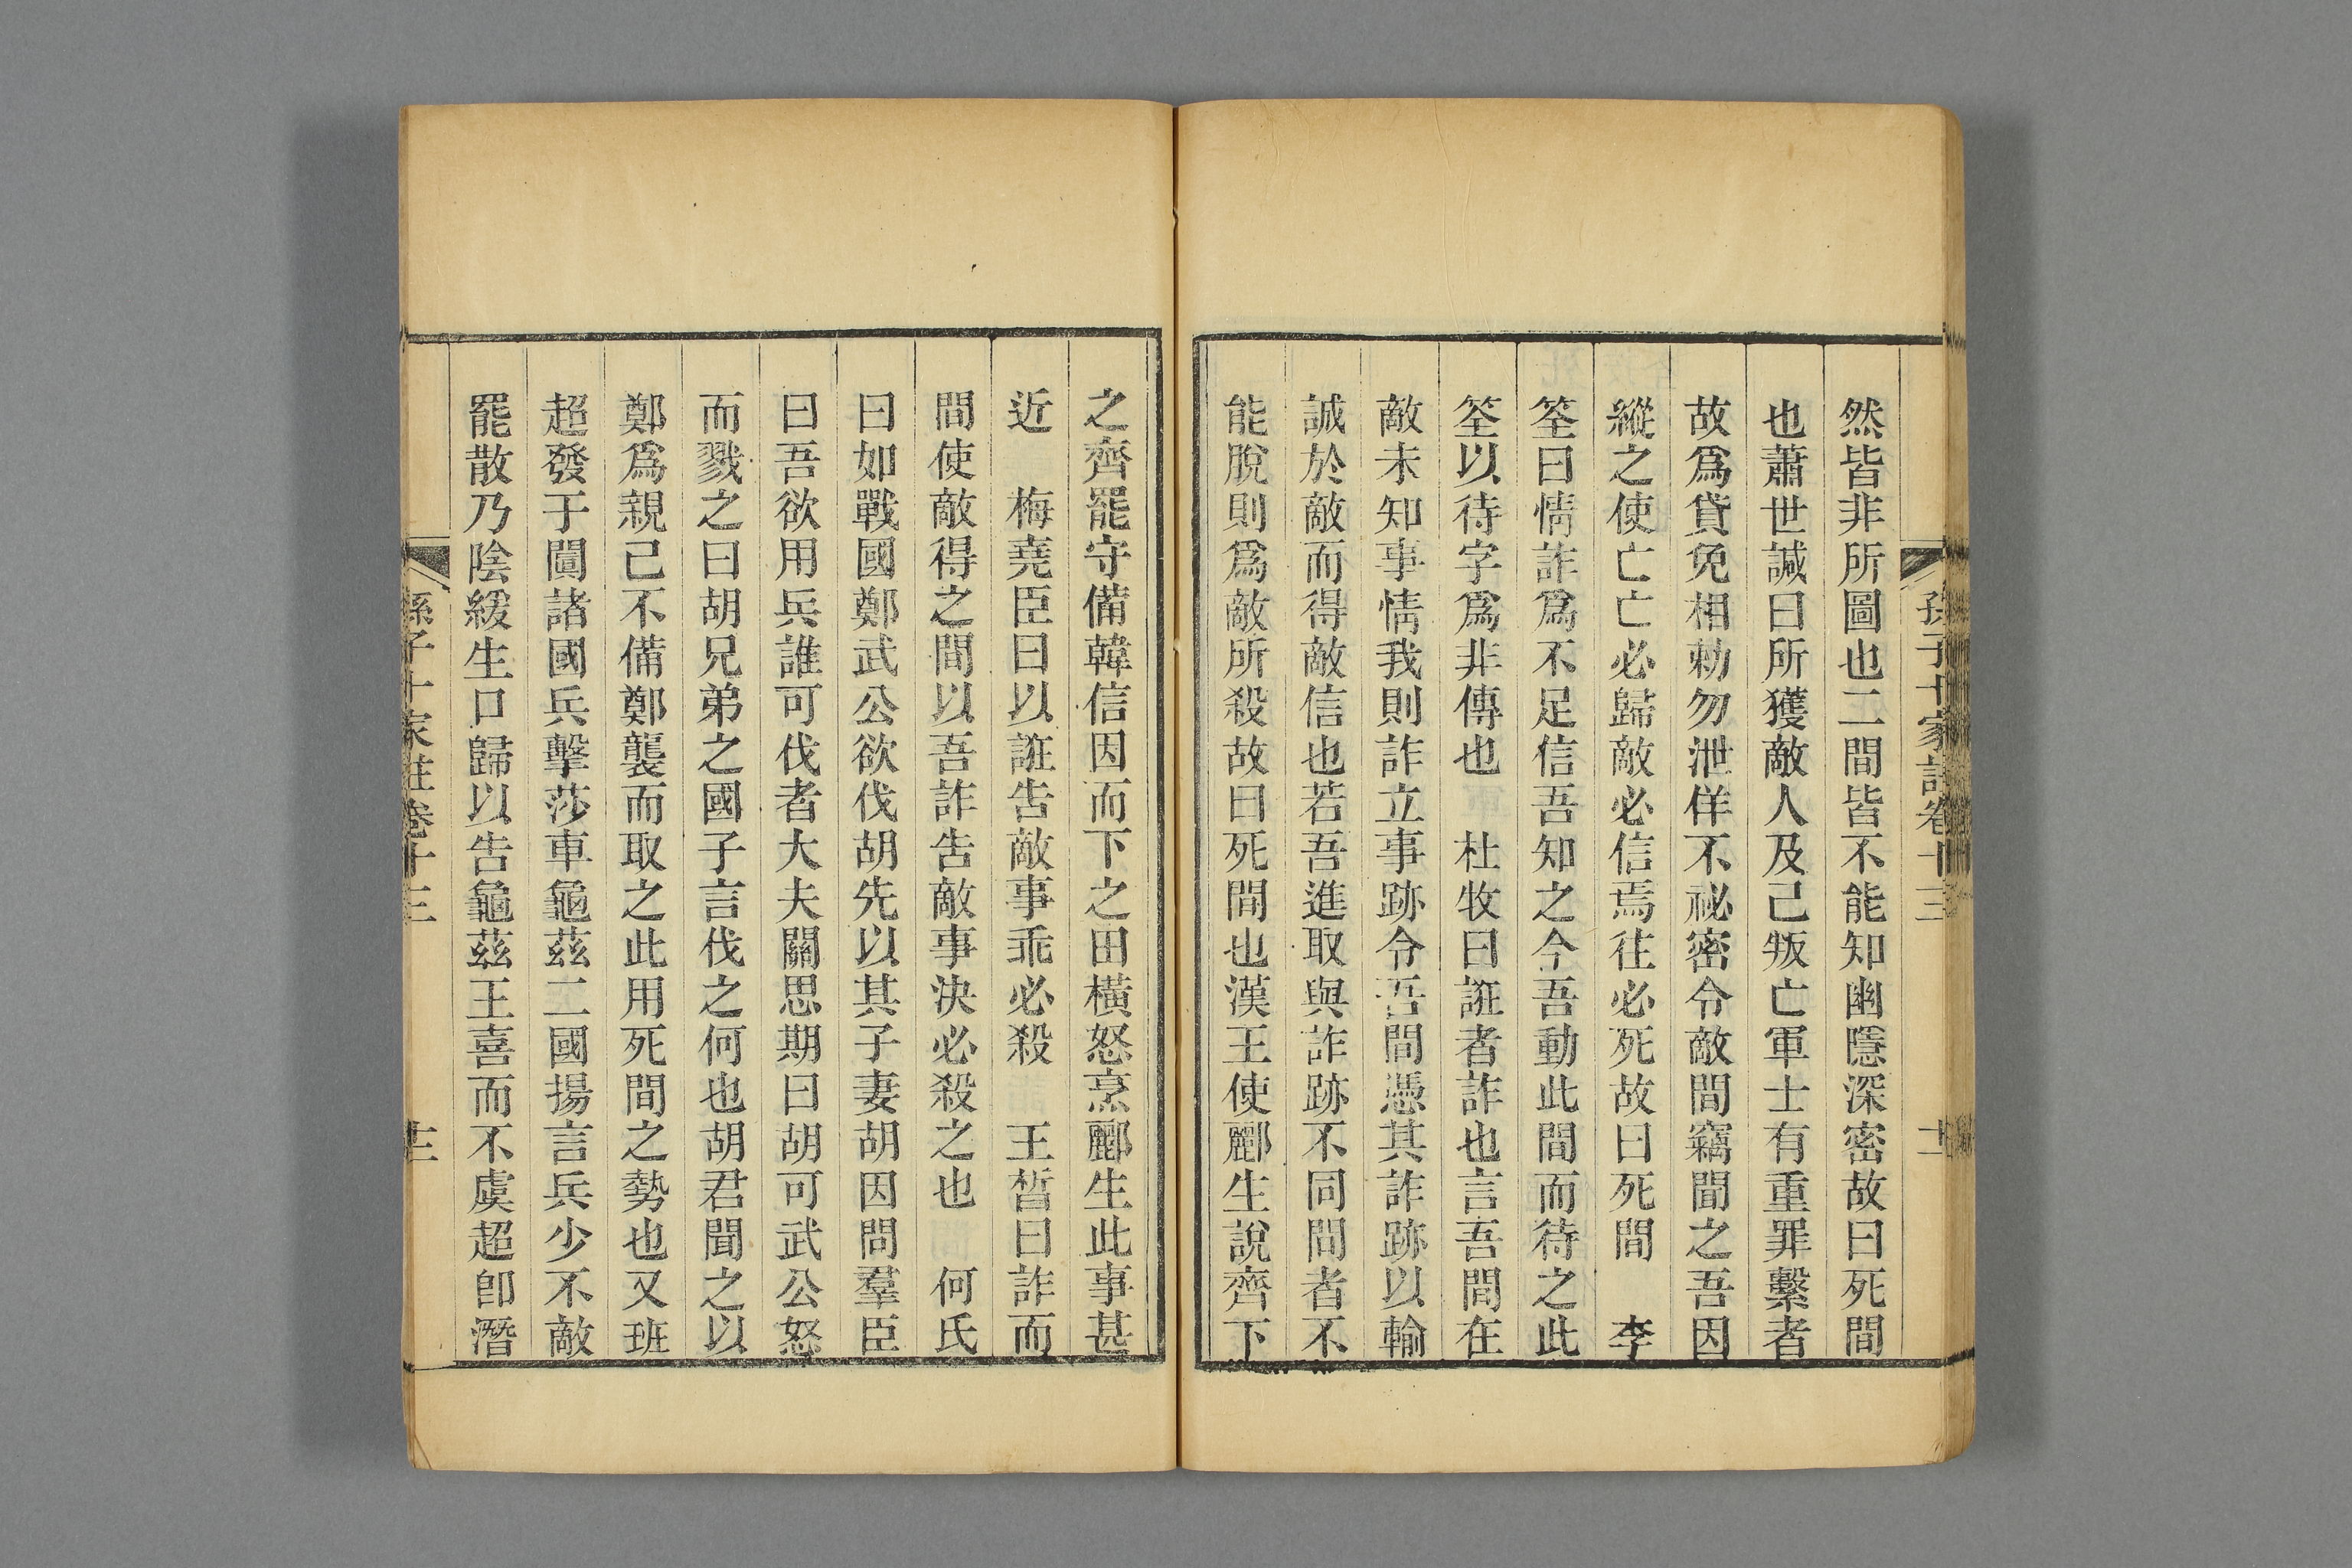 孫子十家註卷十三
十二
然皆非所圖也二間皆不能知幽隱深密故曰死間
也蕭世諴曰所獲敵人及己叛亡軍士有重罪繫者
故爲貸免相勅勿泄佯不祕密令敵間竊聞之吾因
縱之使亡亡必歸敵必信焉往必死故曰死間　李
筌曰情詐爲不足信吾知之今吾動此間而待之此
筌以待字爲非傳也　杜牧曰誑者詐也言吾間在
敵未知事情我則詐立事跡令吾間憑其詐跡以輸
誠於敵而得敵信也若吾進取與詐跡不同間者不
能脫則爲敵所殺故曰死間也漢王使酈生說齊下
之齊罷守備韓信因而下之田橫怒烹酈生此事甚
近　梅堯臣曰以誑告敵事乖必殺　王晳曰詐而
間使敵得之間以吾詐告敵事決必殺之也　何氏
曰如戰國鄭武公欲伐胡先以其子妻胡因問羣臣
曰吾欲用兵誰可伐者大夫關思期曰胡可武公怒
而戮之曰胡兄弟之國子言伐之何也胡君聞之以
鄭爲親己不備鄭襲而取之此用死間之勢也又班
超發于闐諸國兵擊莎車龜茲二國揚言兵少不敵
罷散乃陰緩生口歸以告龜茲王喜而不虞超卽潛
孫子十家註卷十三